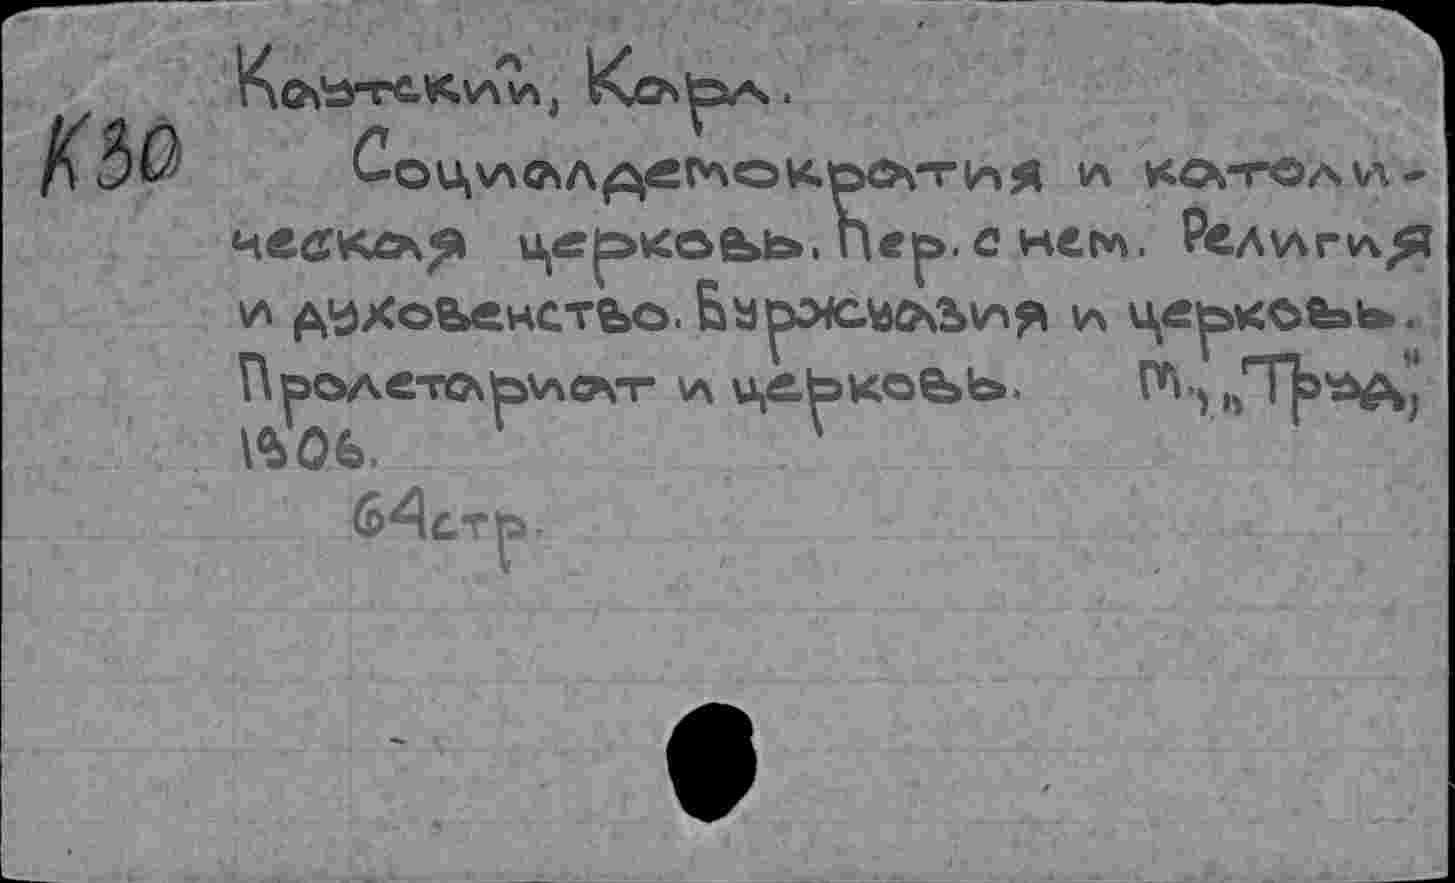 Каутский, Карл.
К30
Социалдемократия и католи-
ческая церковь. Пер. с нем. Религия
и духовенство. Буржуазия и церковь.
Пролетариат и церковь. М., „Труд",
1906.
64 стр.